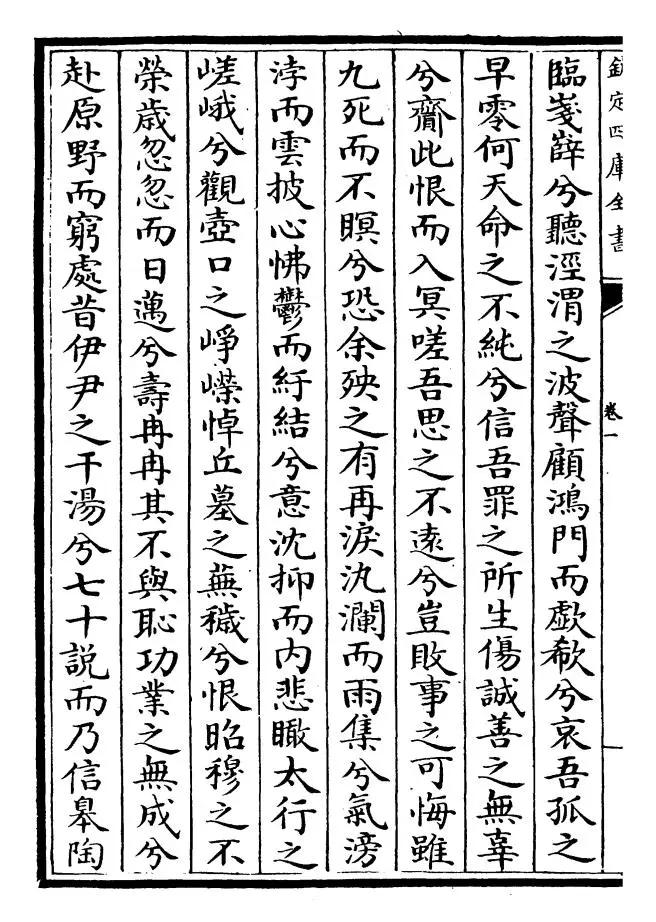 欽定四庫全書
卷一
臨嶘嶭兮聽涇渭之波聲顧鴻門而歔欷兮哀吾孤之
早零何天命之不純兮信吾罪之所生傷誠善之無辜
兮齎此恨而入冥嗟吾思之不逺兮豈敗事之可悔雖
九死而不瞑兮恐余殃之有再淚汍瀾而雨集兮氣滂
浡而雲披心怫鬱而紆結兮意沈抑而内悲瞰太行之
嵯峨兮觀壺口之崢嶸悼丘墓之蕪穢兮恨昭穆之不
榮歳忽忽而日邁兮壽冉冉其不與恥功業之無成兮
赴原野而窮處昔伊尹之干湯兮七十説而乃信臯陶